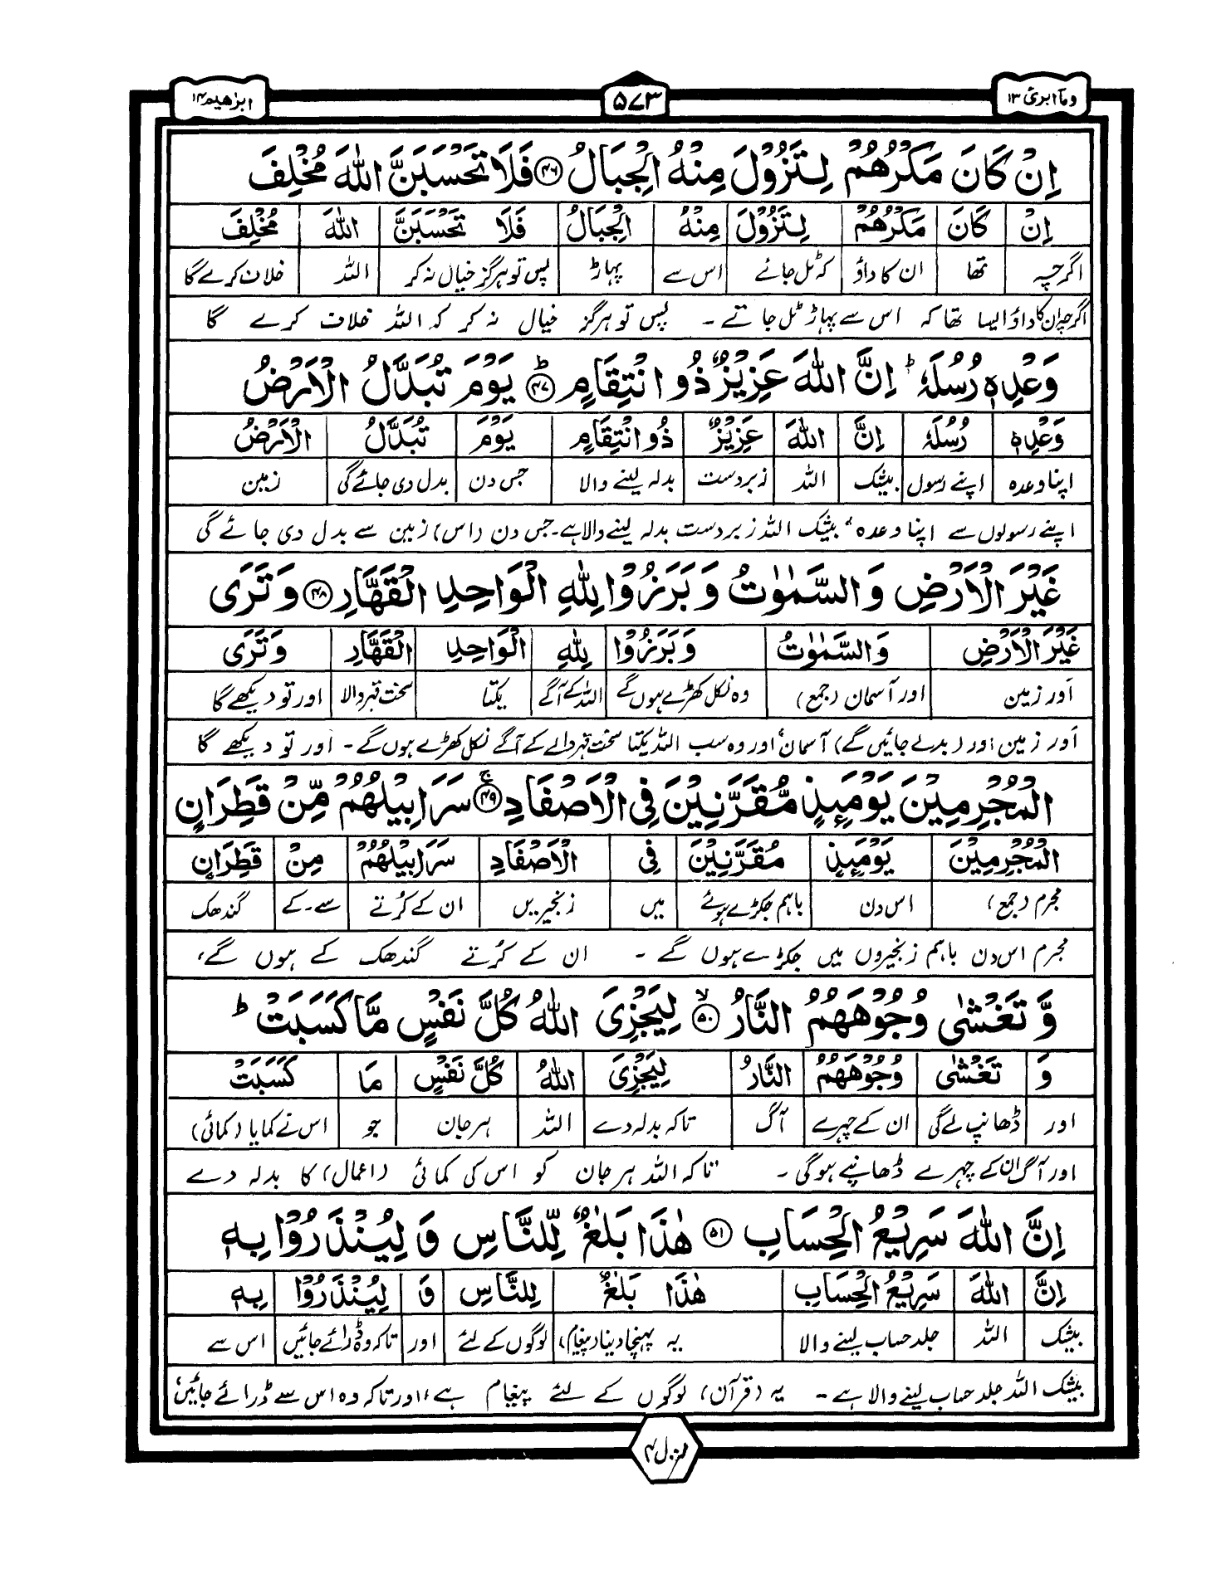 ومآ ابرئ ۱۳
۵۷۳
ابرٰهیم ۱۴
اِنْ كَانَ مَكْرُهُمْ لِتَزُوْلَ مِنْهُ الْجِبَالُ ۴۶ فَلَا تَحْسَبَنَّ اللّٰهَ مُخْلِفَ
اِنْ كَانَ مَكْرُهُمْ لِتَزُوْلَ مِنْهُ الْجِبَالُ فَلَا تَحْسَبَنَّ اللّٰهَ مُخْلِفَ
اگرچہ تھا ان کا داؤ کہ ٹل جائے اس سے پہاڑ پس تو ہرگز خیال نہ کر اللہ خلاف کرے گا
اگرچہ ان کا داؤ ایسا تھا کہ اس سے پہاڑ ٹل جاتے ۔ پس تو ہرگز خیال نہ کر کہ اللہ خلاف کرے گا
وَعْدِهٖ رُسُلَهٗ ؕ اِنَّ اللّٰهَ عَزِيْزٌ ذُو انْتِقَامٍ ؕ ۴۷ يَوْمَ تُبَدَّلُ الْاَرْضُ
وَعْدِهٖ رُسُلَهٗ اِنَّ اللّٰهَ عَزِيْزٌ ذُو انْتِقَامٍ يَوْمَ تُبَدَّلُ الْاَرْضُ
اپنا وعدہ اپنے رسول بیشک اللہ زبردست بدلہ لینے والا جس دن بدل دی جائے گی زمین
اپنے رسولوں سے اپنا وعدہ، بیشک اللہ زبردست بدلہ لینے والا ہے۔ جس دن (اس) زمین سے بدل دی جائے گی
غَيْرَ الْاَرْضِ وَالسَّمٰوٰتُ وَبَرَزُوْا لِلّٰهِ الْوَاحِدِ الْقَهَّارِ ۴۸ وَتَرَى
غَيْرَ الْاَرْضِ وَالسَّمٰوٰتُ وَبَرَزُوْا لِلّٰهِ الْوَاحِدِ الْقَهَّارِ وَتَرَى
اَور زمین اور آسمان (جمع) وہ نکل کھڑے ہوں گے اللہ کے آگے یکتا سخت قہر والا اور تو دیکھے گا
اَور زمین اور (بدلے جائیں گے) آسمان، اور وہ سب اللہ یکتا سخت قہر والے کے آگے نکل کھڑے ہوں گے ۔ اور تو دیکھے گا
الْمُجْرِمِيْنَ يَوْمَئِذٍ مُّقَرَّنِيْنَ فِى الْاَصْفَادِ ۚ ۴۹ سَرَابِيْلُهُمْ مِّنْ قَطِرَانٍ
الْمُجْرِمِيْنَ يَوْمَئِذٍ مُقَرَّنِيْنَ فِى الْاَصْفَادِ سَرَابِيْلُهُمْ مِنْ قَطِرَانٍ
مجرم (جمع) اس دن باہم جکڑے ہوئے میں زنجیریں ان کے کُرتے سے۔ کے گندھک
مجرم اس دن باہم زنجیروں میں جکڑے ہوں گے ۔ ان کے کُرتے گندھک کے ہوں گے،
وَّ تَغْشٰى وُجُوْهَهُمُ النَّارُ ۙ ۵۰ لِيَجْزِىَ اللّٰهُ كُلَّ نَفْسٍ مَّا كَسَبَتْ ؕ
وَ تَغْشٰى وُجُوْهَهُمُ النَّارُ لِيَجْزِىَ اللّٰهُ كُلَّ نَفْسٍ مَا كَسَبَتْ
اور ڈھانپ لے گی ان کے چہرے آگ تاکہ بدلہ دے اللہ ہر جان جو اس نے کمایا (کمائی)
اور آگ ان کے چہرے ڈھانپے ہوگی ۔ تاکہ اللہ ہر جان کو اس کی کمائی (اعمال) کا بدلہ دے
اِنَّ اللّٰهَ سَرِيْعُ الْحِسَابِ ۵۱ هٰذَا بَلٰغٌ لِّلنَّاسِ وَلِيُنْذَرُوْا بِهٖ
اِنَّ اللّٰهَ سَرِيْعُ الْحِسَابِ هٰذَا بَلٰغٌ لِلنَّاسِ وَ لِيُنْذَرُوْا بِهٖ
بیشک اللہ جلد حساب لینے والا یہ پہنچا دینا (پیغام) لوگوں کے لئے اور تاکہ وہ ڈرائے جائیں اس سے
بیشک اللہ جلد حساب لینے والا ہے ۔ یہ (قرآن) لوگوں کے لئے پیغام ہے، اور تاکہ وہ اس سے ڈرائے جائیں
منزل ۳